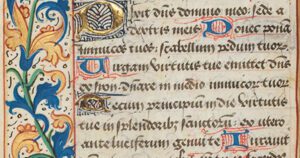 Dixit dn̄s domino meo sede a
dextris meis Donec ponā
inimicos tuos, scabellum pedum tuoꝝ
Virgam virtutis tue emittet dn̄s
ex syon dn̄are in medio inimicoꝝ tuoꝝ
Tecum principiū in die virtutis
tue in splendorib sanctorū ex utero
ante luciferum genui te Iuravit